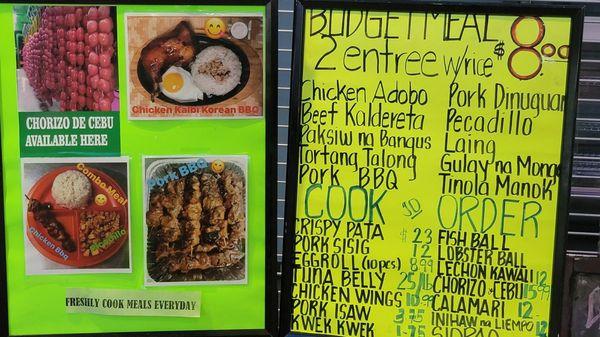 CHORIZO DE CEBU
AVAILABLE HERE
Chicken Kalbi Korean BBQ
Combo Meal
Chicken BBQ
Picadillo
Pork BBQ
FRESHLY COOK MEALS EVERYDAY
BUDGET MEAL $8.00
2 entree w/rice
Chicken Adobo
Beef Kaldereta
Paksiw na Bangus
Tortang Talong
Pork BBQ
Pork Dinuguan
Pecadillo
Laing
Gulay na Mongo
Tinola Manok
COOK TO ORDER
CRISPY PATA $23
PORK SISIG 12
EGGROLL (10pcs) 8.99
TUNA BELLY 25/lb
CHICKEN WINGS 10.99
PORK ISAW 3.75
KWEK KWEK 1.75
FISH BALL
LOBSTER BALL
LECHON KAWALI 12
CHORIZO CEBU 15.99
CALAMARI 12
INIHAW na LIEMPO 12
SIOPAO